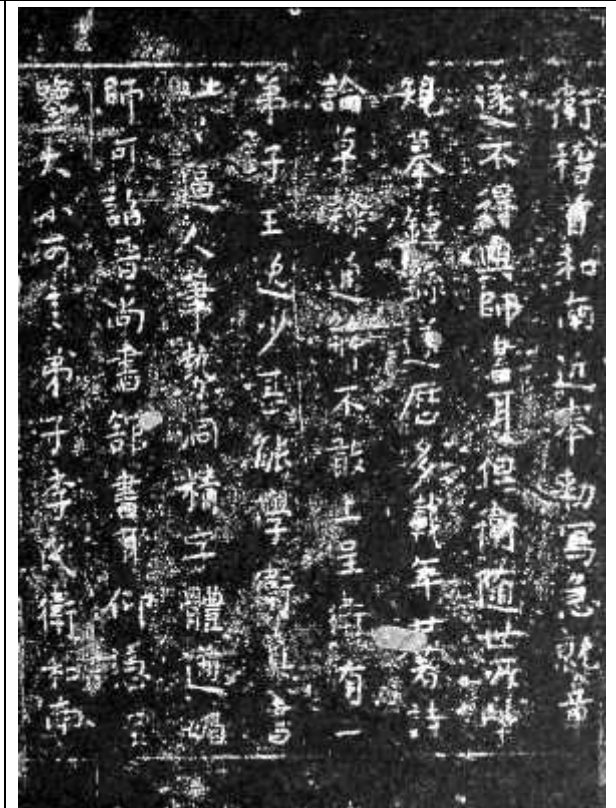 衛稽首和南近奉勅寫急就章
遂不得與師書耳但衛隨世所學
規摹鍾繇遂歷多載年廿著詩
論草隸通解不敢上呈衛有一
弟子王逸少甚能學衛真書
咄咄逼人筆勢洞精字體遒媚
師可詣晉尚書館書耳仰憑至
鑒大不可言弟子李氏衛和南